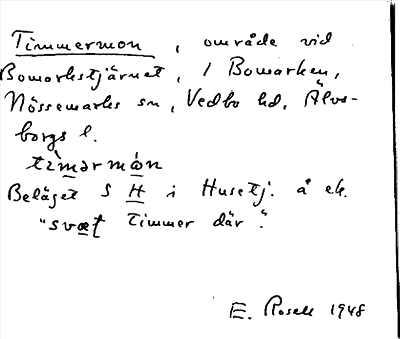 Timmermon, område vid
Bomarkstjärnet, i Bomarken,
Nössemarks sn, Vedbo hd, Älvs-
borgs l.
tìmərmón
Beläget S H i Husetj. å ek.
"svæt timmer där".
E. Rosell 1948